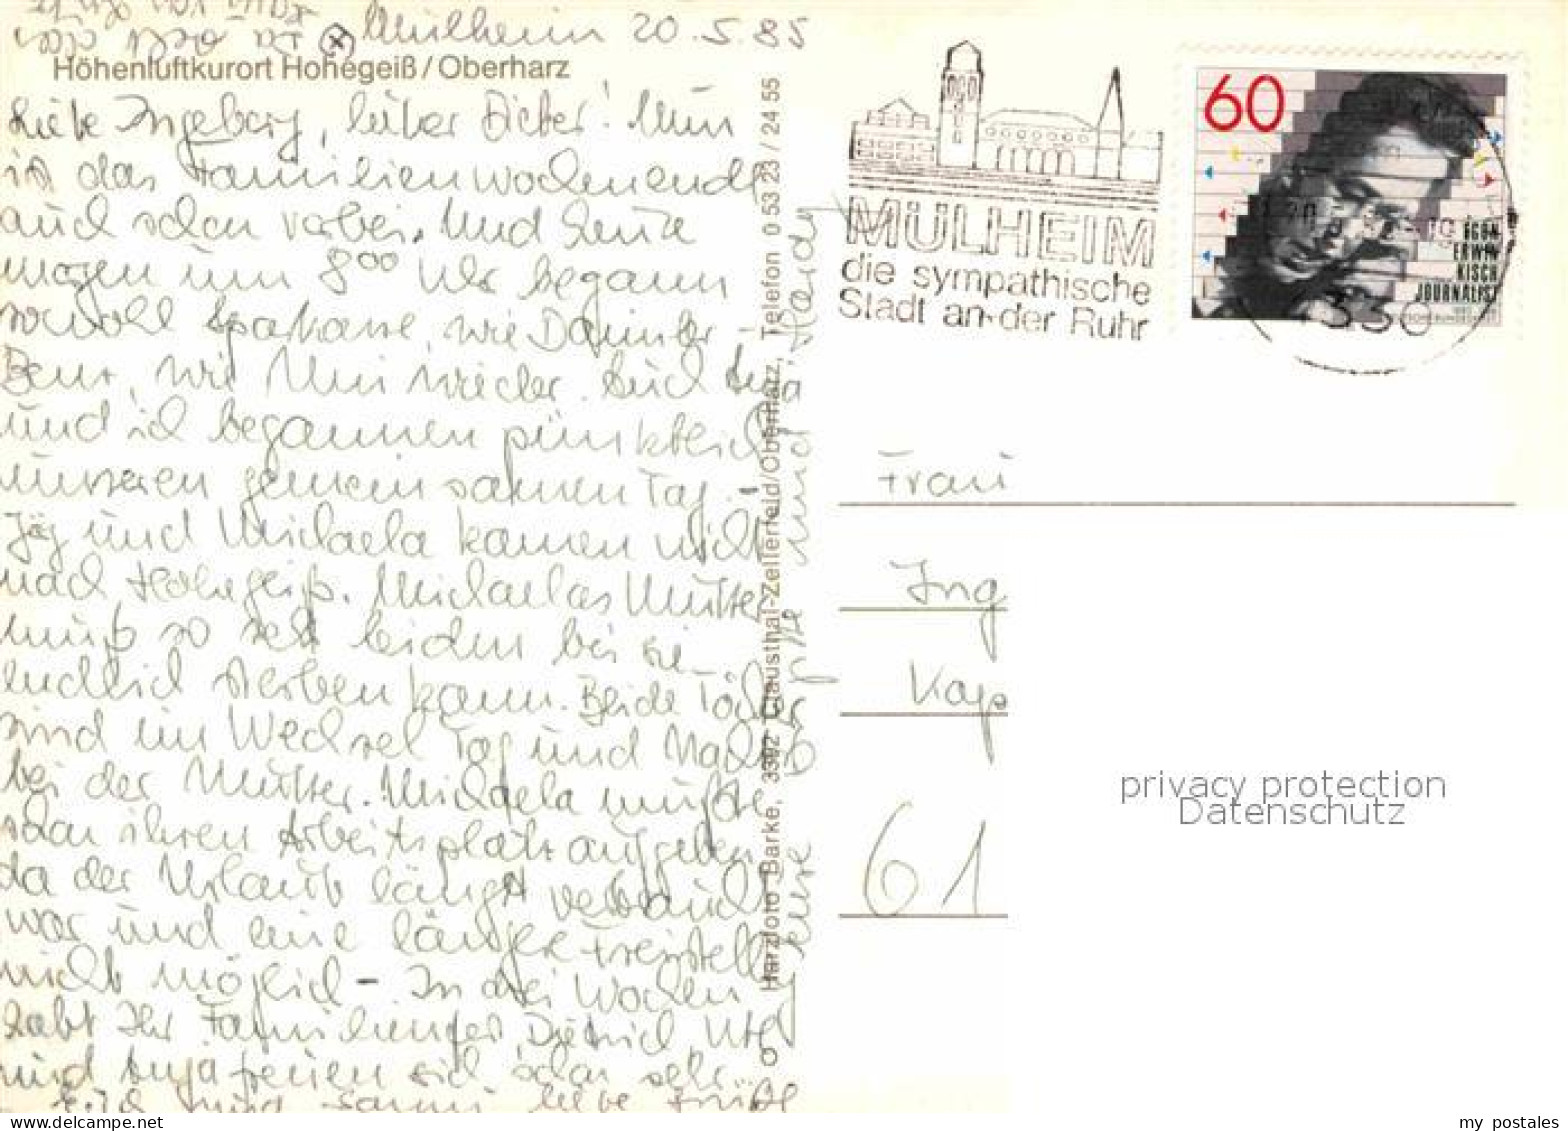 Mülheim 20.5.85
Höhenluftkurort Hohegeiß/Oberharz
Liebe Ingeborg, lieber Dieter! Nun
ist das Familienwochenende
auch schon vorbei. Und heute
morgen um 8⁰⁰ Uhr begann
sowohl Sparkasse, wie Daimler-
Benz, wie Uni wieder. Auch Anja
und ich begannen pünktlich
unseren gemeinsamen Tag. -
Jög und Michaela kamen nicht
nach Hohegeiß. Michaelas Mutter
muß so sehr leiden bis sie
endlich sterben kann. Beide Töchter
sind im Wechsel Tag und Nacht
bei der Mutter. Michaela mußte
schon ihren Arbeitsplatz aufgeben
da der Urlaub längst verbraucht
war und eine längere Freistell
nicht möglich - In drei Wochen
habt Ihr Familienfest, Dietrich, Ute
und Anja freuen sich schon sehr...
Euch liebe Grüße
Harzfoto Barke, 3392 Clausthal-Zellerfeld/Oberharz, Telefon 0 53 23 / 24 55
MÜLHEIM
die sympathische
Stadt an der Ruhr
60
EGON
ERWIN
KISCH
JOURNALIST
4330
Frau
Ing
Kap
61
privacy protection
Datenschutz
www.delcampe.net
my_postales